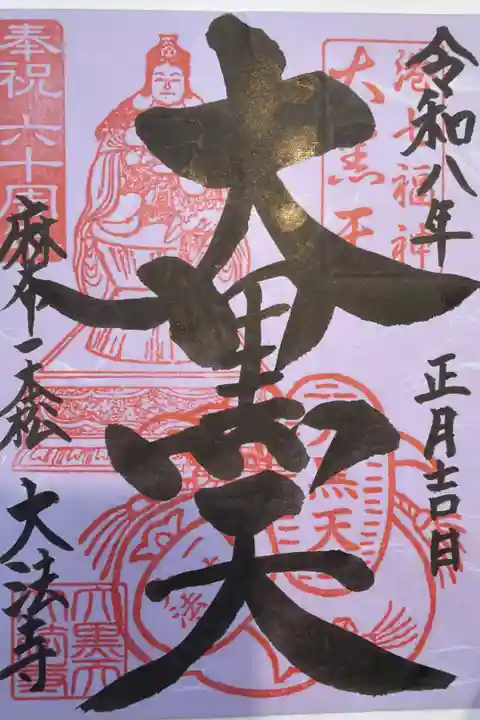 令和八年
正月吉日
港七福神
大黒天
大黒天
奉祝 六十周
麻布一本松
大法寺
三大黒天
法